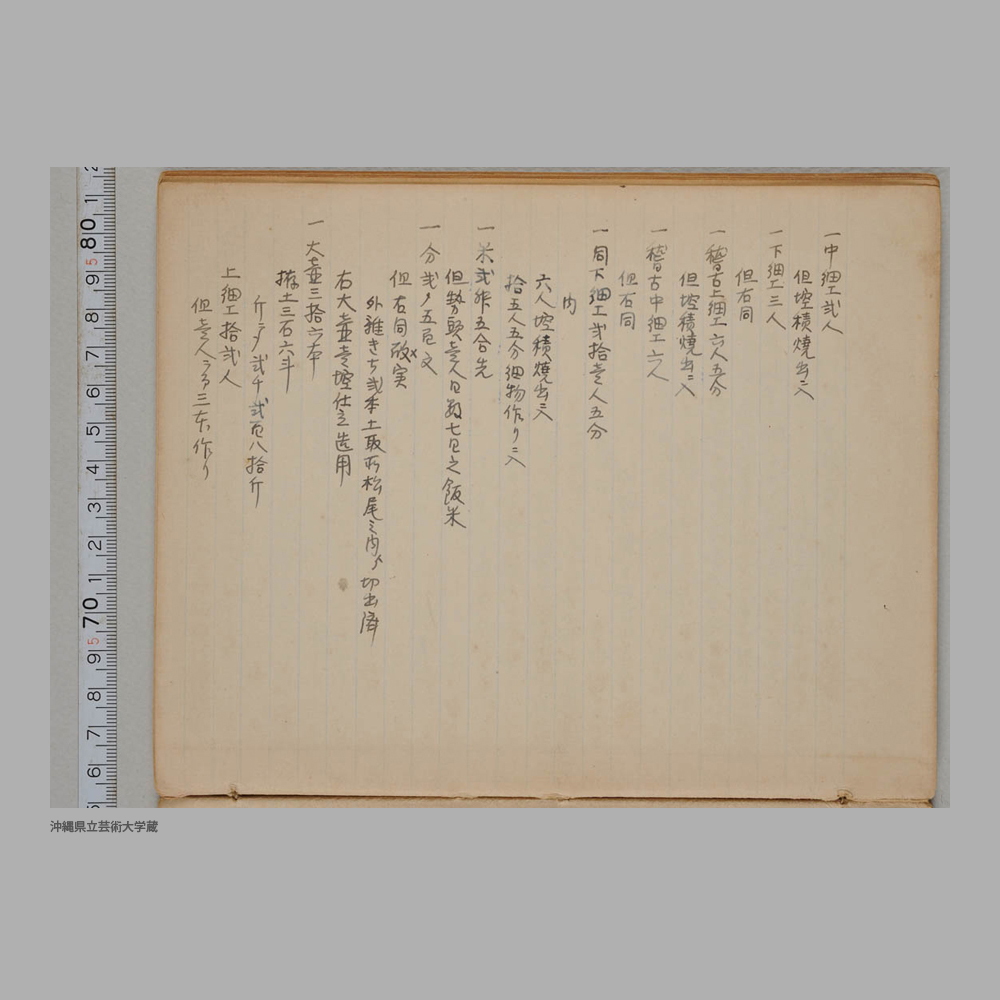 一中細工弐人
但埪積焼出ニ入
一下細工三人
但右同
一稽古上細工六人五分
但埪積焼出ニ入
一稽古中細工六人
但右同
一同下細工弐拾壱人五分
内
六人埪積焼出ニ入
拾五人五分細物作リニ入
一米弐舛五合先
但勢頭壱人日数七日之飯米
一分弐〆五百文
但右同
外雑きち弐本土取所松尾之内〆切出済
右大壷壱埪仕立造用
一大壷三拾六本
土三石六斗
斤
弐千弐百八拾斤
上細工拾弐人
但壱人ニ而三本作り
沖縄県立芸術大学蔵
80
70